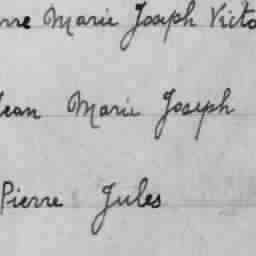 rre Marie Joseph Victo
Jean Marie Joseph
Pierre Jules